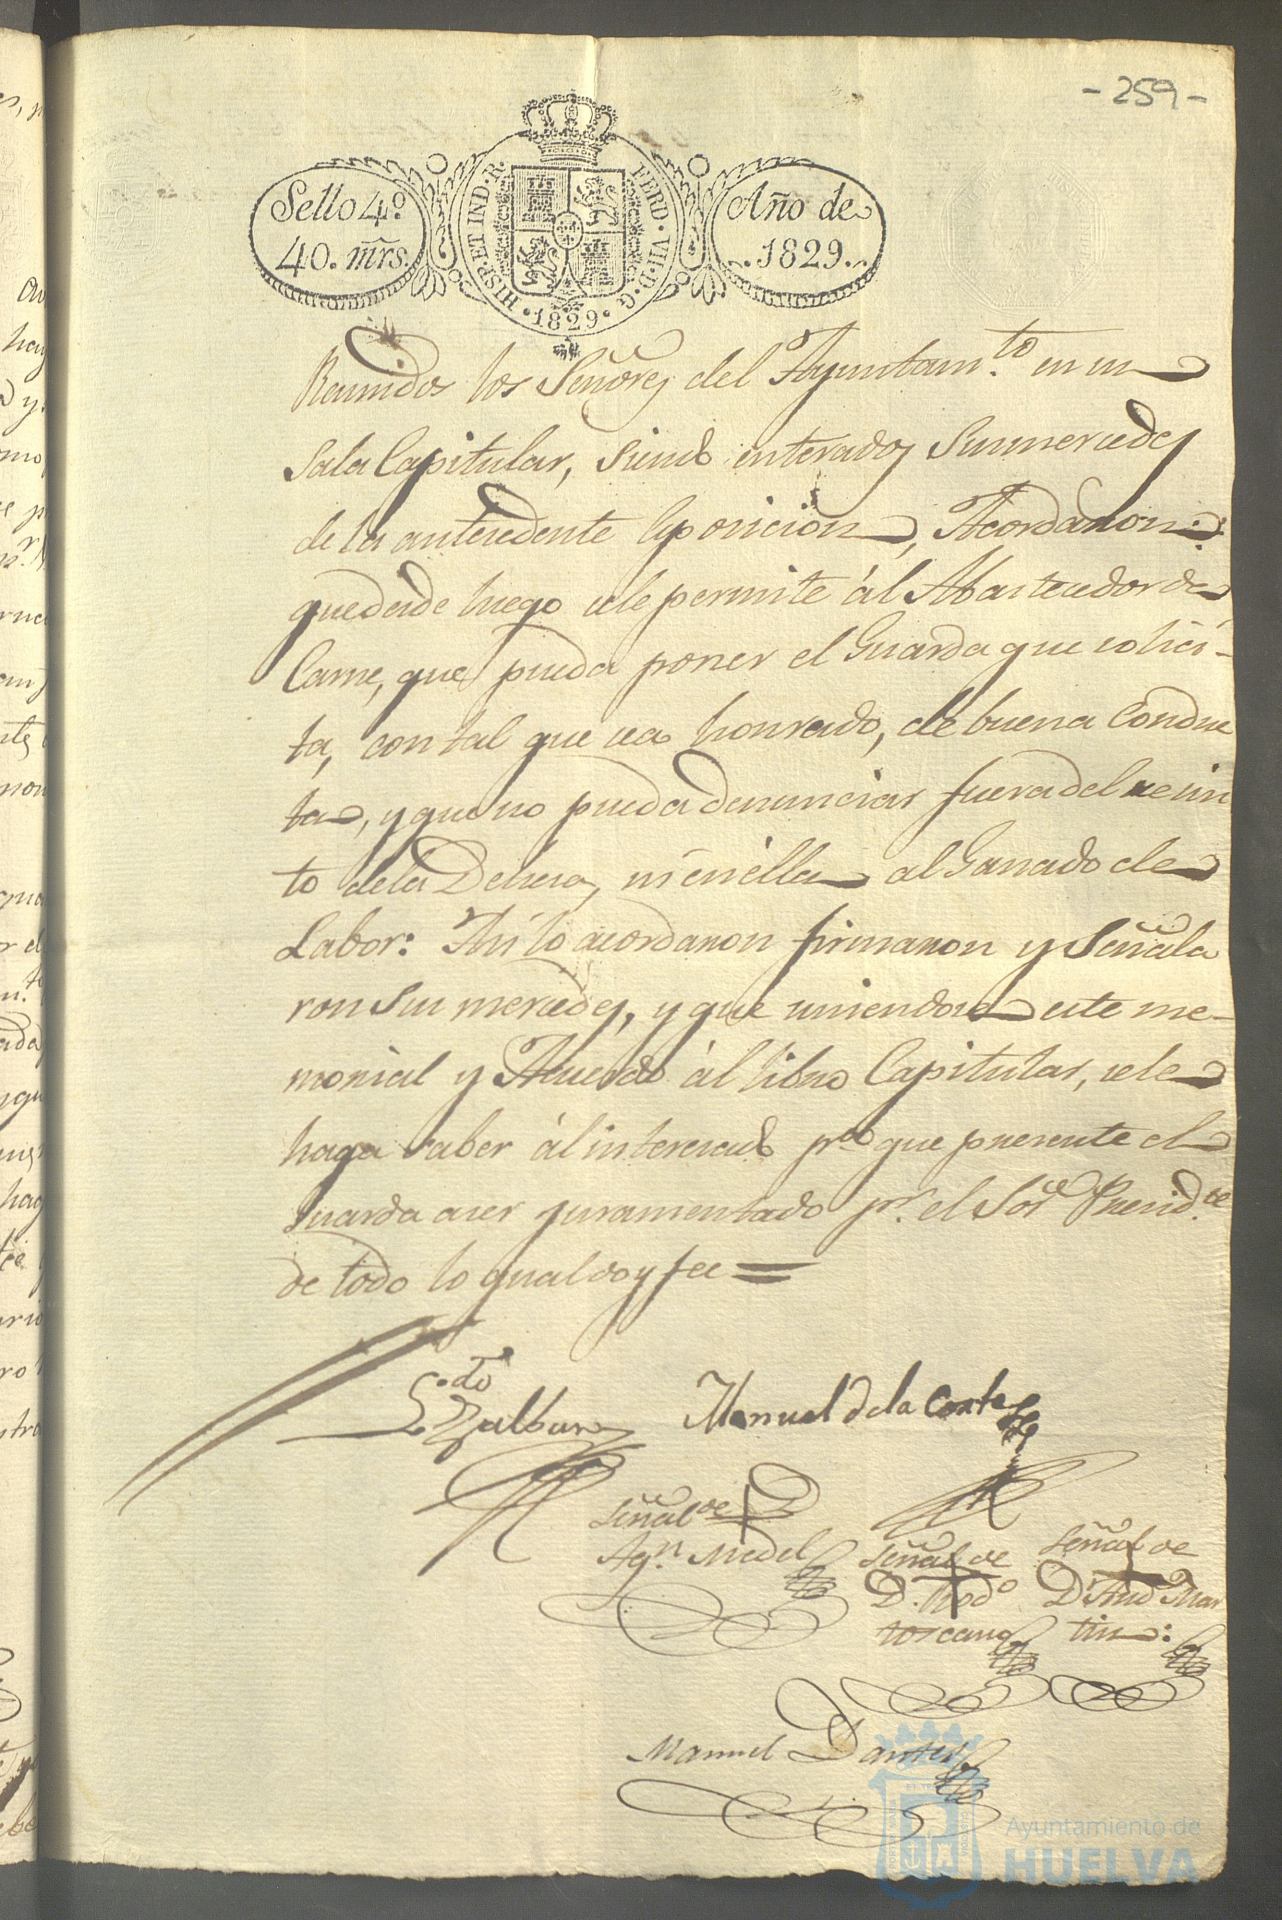 -259-
Sello 4.º
40. mrs.
HISP. ET IND. R.
FERD. VII. D. G.
·1829·
Año de
1829.
Reunidos los Señores del Ayuntam.to en su
Sala Capitular, siendo enterados Susmercedes
de la antecedente Exposicion, Acordaron:
que desde luego sele permite ál Abastecedor de
Carne, que pueda poner el Guarda que solici-
ta, con tal que sea honrado, de buena Conduc
ta, y que no pueda denunciar fuera del recin
to dela Dehesa, ni en élla al Ganado de
Labor: Así lo acordaron firmaron y Señala
ron Sus mercedes, y que uniendose este me-
morial y Acuerdo ál libro Capitular, sele
haga saber ál interesado p.a que presente el
Guarda a ser juramentado p.r el Sor. Presid.te
de todo lo qual doy fee =
L.do
Manuel de la Corte
Señal de
Ag.n Medel
Señal de
D. Rod.o
toscano
Señal de
D. And. Mar
tin:
Manuel
Ayuntamiento de
HUELVA